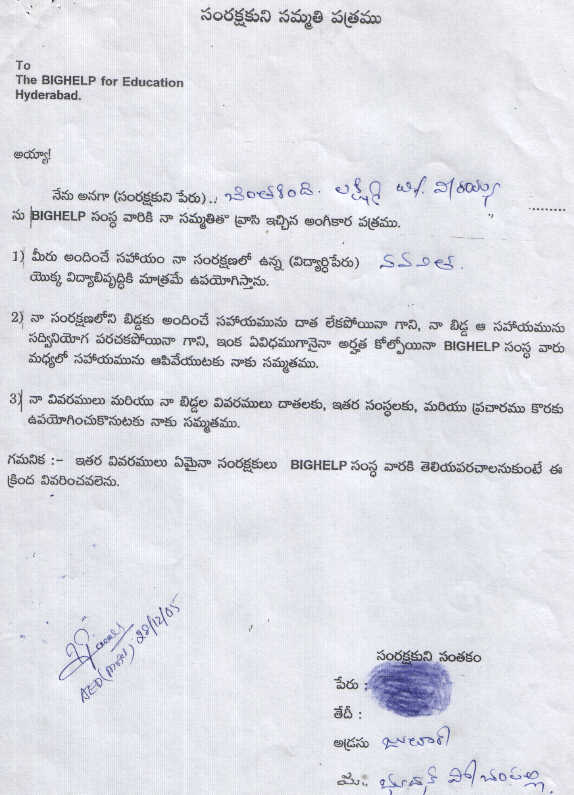 సంరక్షకుని సమ్మతి పత్రము
To
The BIGHELP for Education
Hyderabad.
అయ్యా!
నేను అనగా (సంరక్షకుని పేరు)..: చింతకింది. లక్ష్మి W/o. వీరయ్య ..........
ను BIGHELP సంస్థ వారికి నా సమ్మతితో వ్రాసి ఇచ్చిన అంగీకార పత్రము.
1) మీరు అందించే సహాయం నా సంరక్షణలో ఉన్న (విద్యార్ధిపేరు) నవనీత.
యొక్క విద్యాభివృద్ధికి మాత్రమే ఉపయోగిస్తాను.
2) నా సంరక్షణలోని బిడ్డకు అందించే సహాయమును దాత లేకపోయినా గాని, నా బిడ్డ ఆ సహాయమును
సద్వినియోగ పరచకపోయినా గాని, ఇంక ఏవిధముగానైనా అర్హత కోల్పోయినా BIGHELP సంస్థ వారు
మధ్యలో సహాయమును ఆపివేయుటకు నాకు సమ్మతము.
3) నా వివరములు మరియు నా బిడ్డల వివరములు దాతలకు, ఇతర సంస్థలకు, మరియు ప్రచారము కొరకు
ఉపయోగించుకొనుటకు నాకు సమ్మతము.
గమనిక :- ఇతర వివరములు ఏమైనా సంరక్షకులు BIGHELP సంస్థ వారకి తెలియపరచాలనుకుంటే ఈ
క్రింద వివరించవలెను.
28/12/05
సంరక్షకుని సంతకం
పేరు :
తేదీ :
అడ్రసు జులూరి
మ.. భూదాన్ పోచంపల్లి.